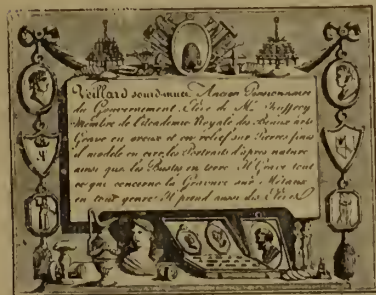 Veillard sourd-muet. Ancien Pensionnaire
du Gouvernement. Elève de Mr. Jeuffroy
Membre de l'Académie Royale des Beaux arts
Grave en creux et en relief sur Pierres fines
il modèle en cire les Portraits d'après nature
ainsi que les Bustes en terre. Il Grave tout
ce qui concerne la Gravure sur Métaux
en tout genre. Il prend aussi des Elèves